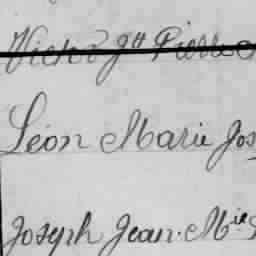 Victor Jh Pierre
Léon Marie Jos
Joseph Jean. Mie